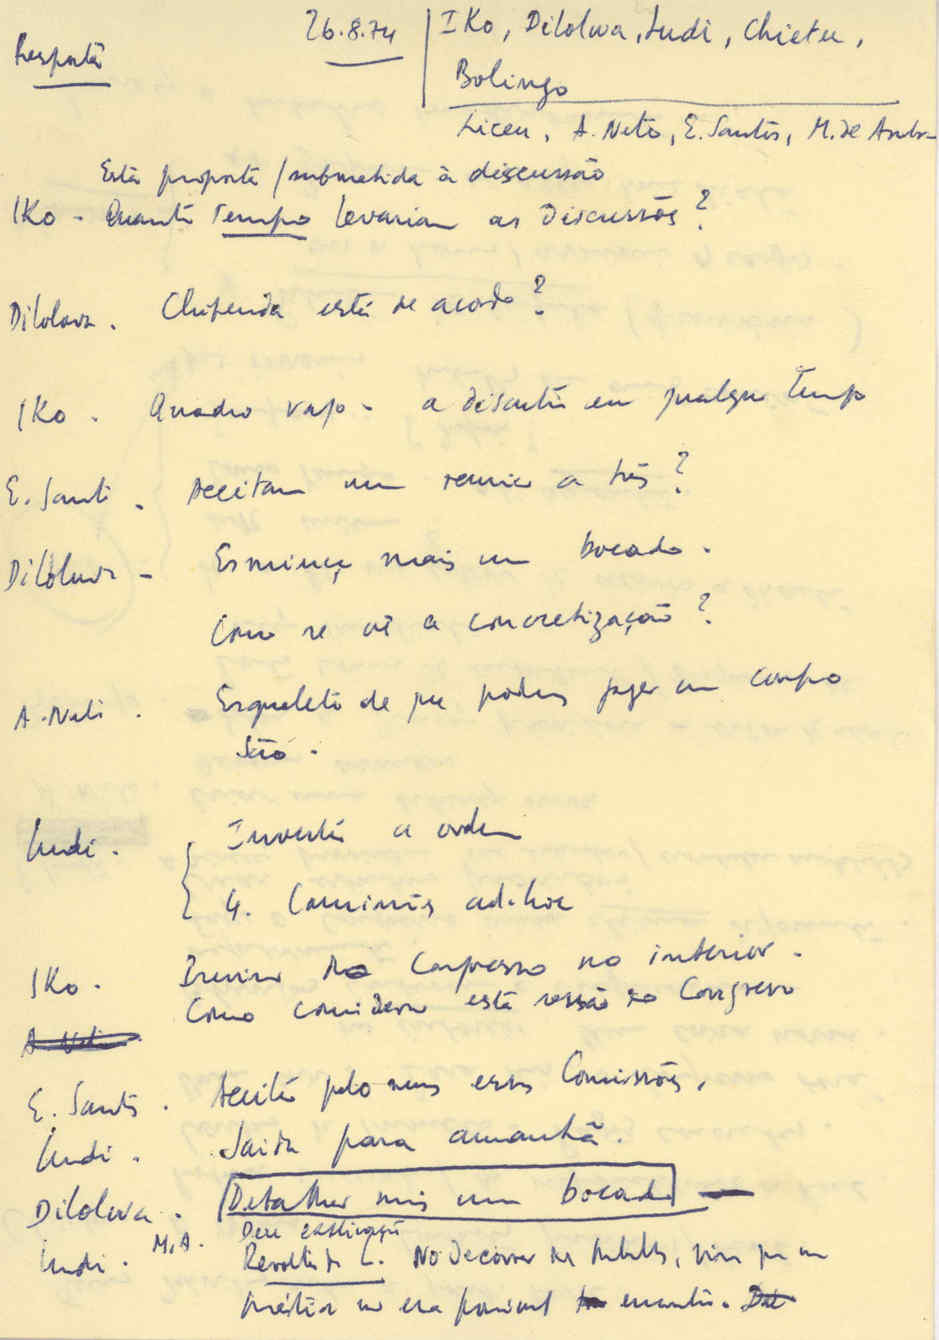 Resposta
26.8.74
IKo, Dilolwa, Ludi, Chieteu,
Bolingo
Liceu, A. Neto, E. Santos, M. de Andra
Está proposta / submetida à discussão
IKo - Quanto Tempo levariam as Discussões?
Dilolwa. Chipenda está de acordo?
IKo. Quadro vago - a discutir em qualquer tempo
E. Santo. Aceitam um reunião a três?
Dilolwa - Esmiuçe mais um bocado.
Como se vê a concretização?
A. Neto. Esqueleto de que podem fazer um corpo
São.
Ludi. Inverter a ordem
4. Comissões ad-hoc
IKo. no Congresso no interior.
Como consideram esta sessão do Congresso
A. Neto.
E. Santos. Aceitar pelo menos essas Comissões.
Ludi. Saida para amanhã.
Dilolwa. Detalhar mais um bocado
Ludi. M.A. Deu
Revolta do L. No decorrer
encontro.